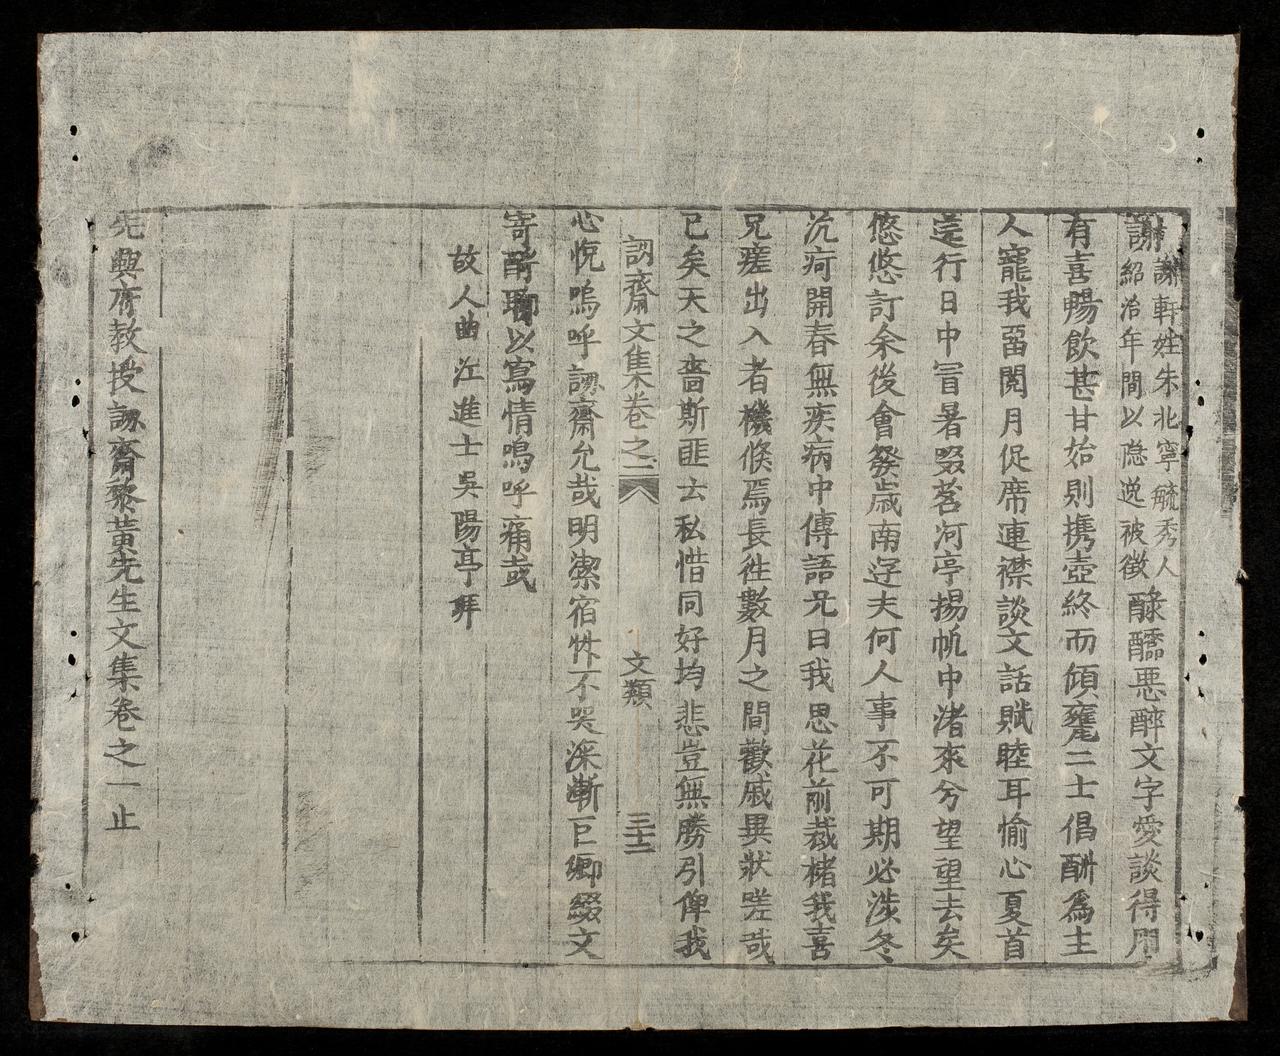 謝
謝軒姓朱北寧毓秀人
紹治年間以隐逸被徵
醁醹悪醉文字愛談得閒
有喜暢飲甚甘始則携壺終而傾甕二士倡酬為主
人寵我畱閲月促席連襟談文話賦睦耳愉心夏首
這行日中冒暑啜茗河亭揚帆中渚來兮望望去矣
悠悠訂余後會癸歲南逕夫何人事不可期必涉冬
沉疴開春無疾病中傳語兄曰我思花前裁楮我喜
兄瘥出入者機倐焉長徃數月之間歡戚異狀嗟哉
已矣天之嗇斯匪云私惜同好均悲豈無勝引俾我
訒齋文集卷之二 文類 三十二
心悅嗚呼訒齋允哉明潔宿忤不哭深慚巨卿綴文
寄酹聊以寫情嗚呼痛哉
故人曲江進士吳陽亭拜
先興府教授訒齋黎黃先生文集卷之一止